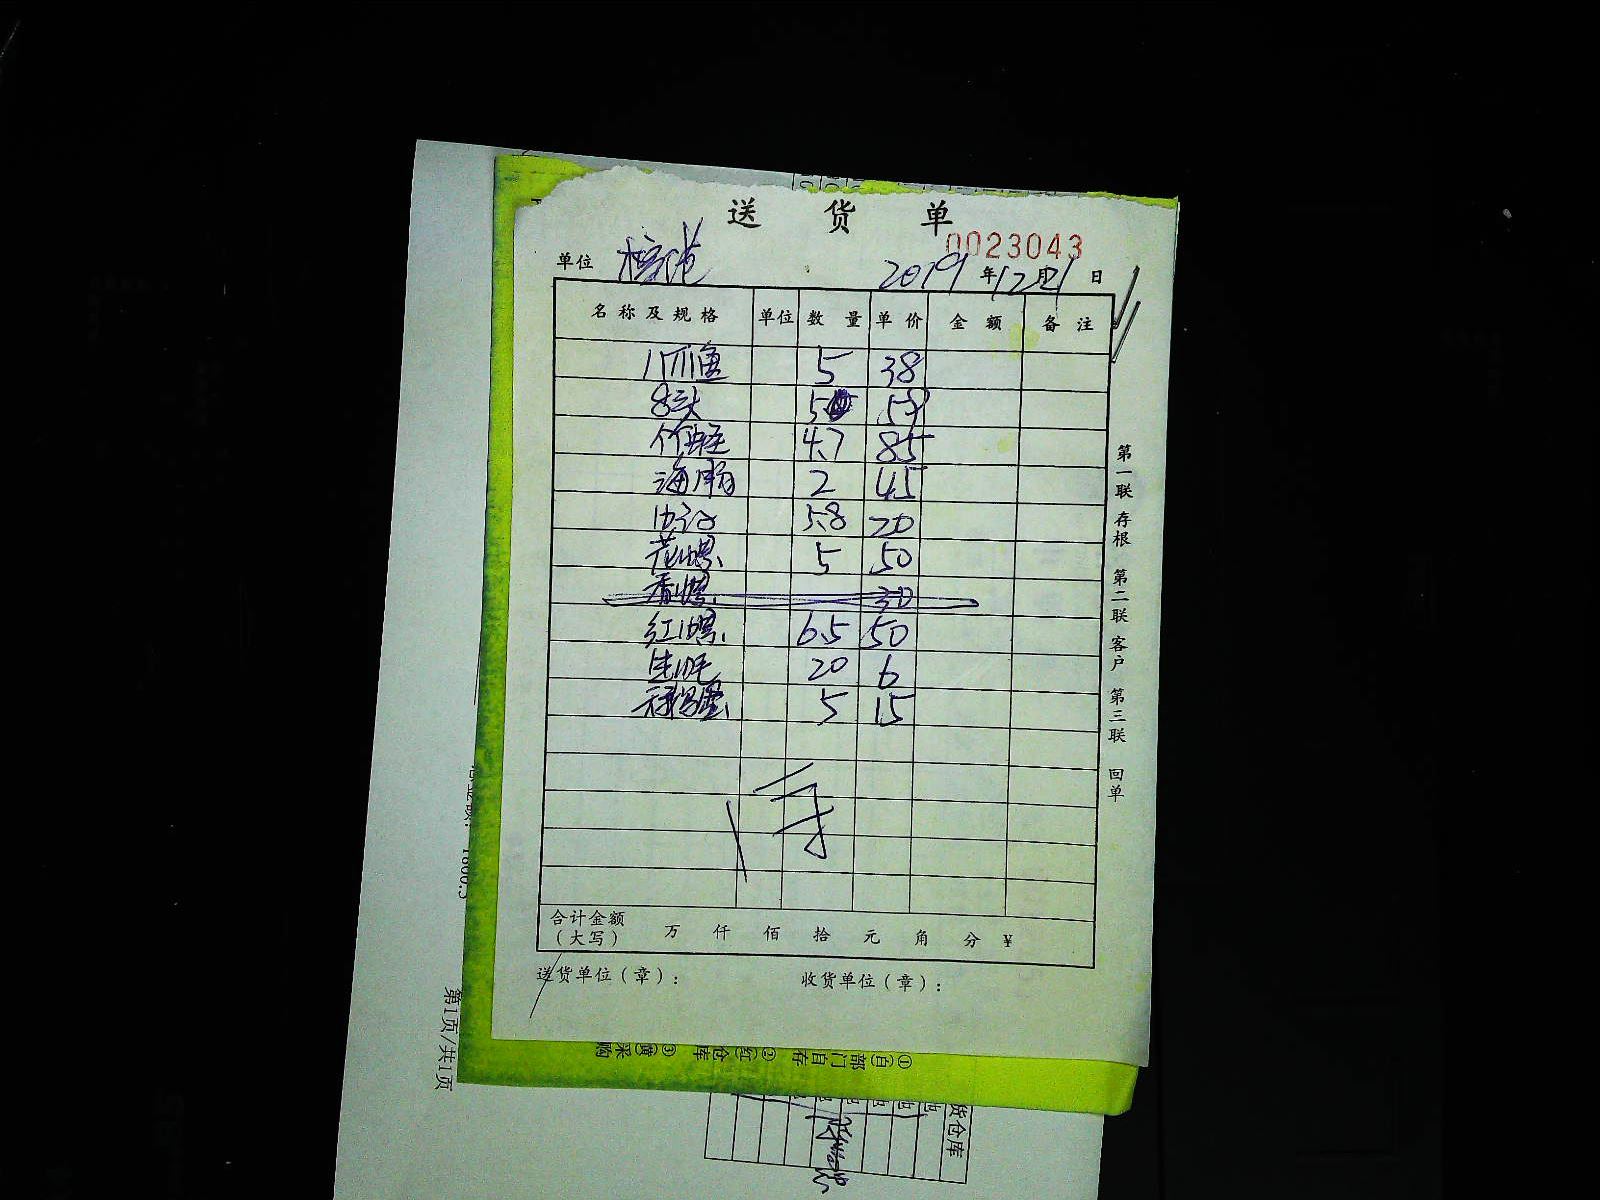 送 货 单
0023043
单位 2019 年 12 月 21 日
名称及规格 单位 数量 单价 金额 备注
八爪鱼 5 38
8头 5 59
竹蛏 4.7 85
海肠 2 45
5.8 20
花螺 5 50
香螺 30
红螺 6.5 50
生蚝 20 6
5 15
合计金额
(大写) 万 仟 佰 拾 元 角 分 ¥
送货单位(章): 收货单位(章):
第一联 存根 第二联 客户 第三联 回单
①(白)部门自存 ②(红)仓库 ③(黄)采购
第1页/共1页
货仓库